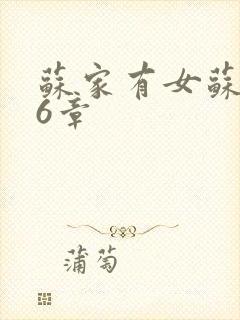 蘇家有女蘇
6章
蒲萄